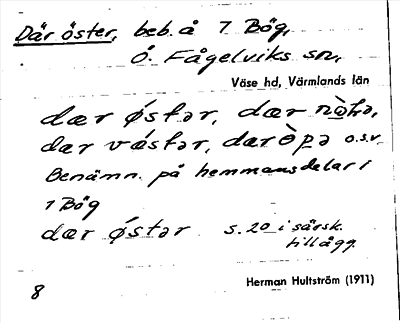 Där öster, beb. å 7 Bög,
Ö. Fågelviks sn,
Väse hd, Värmlands län
dær østər, dær nòḷə,
dær væstər, dær òpə o.s.v.
Benämn. på hemmansdelar i
7 Bög
dær østər s. 20 i särsk.
tillägg.
Herman Hultström (1911)
8